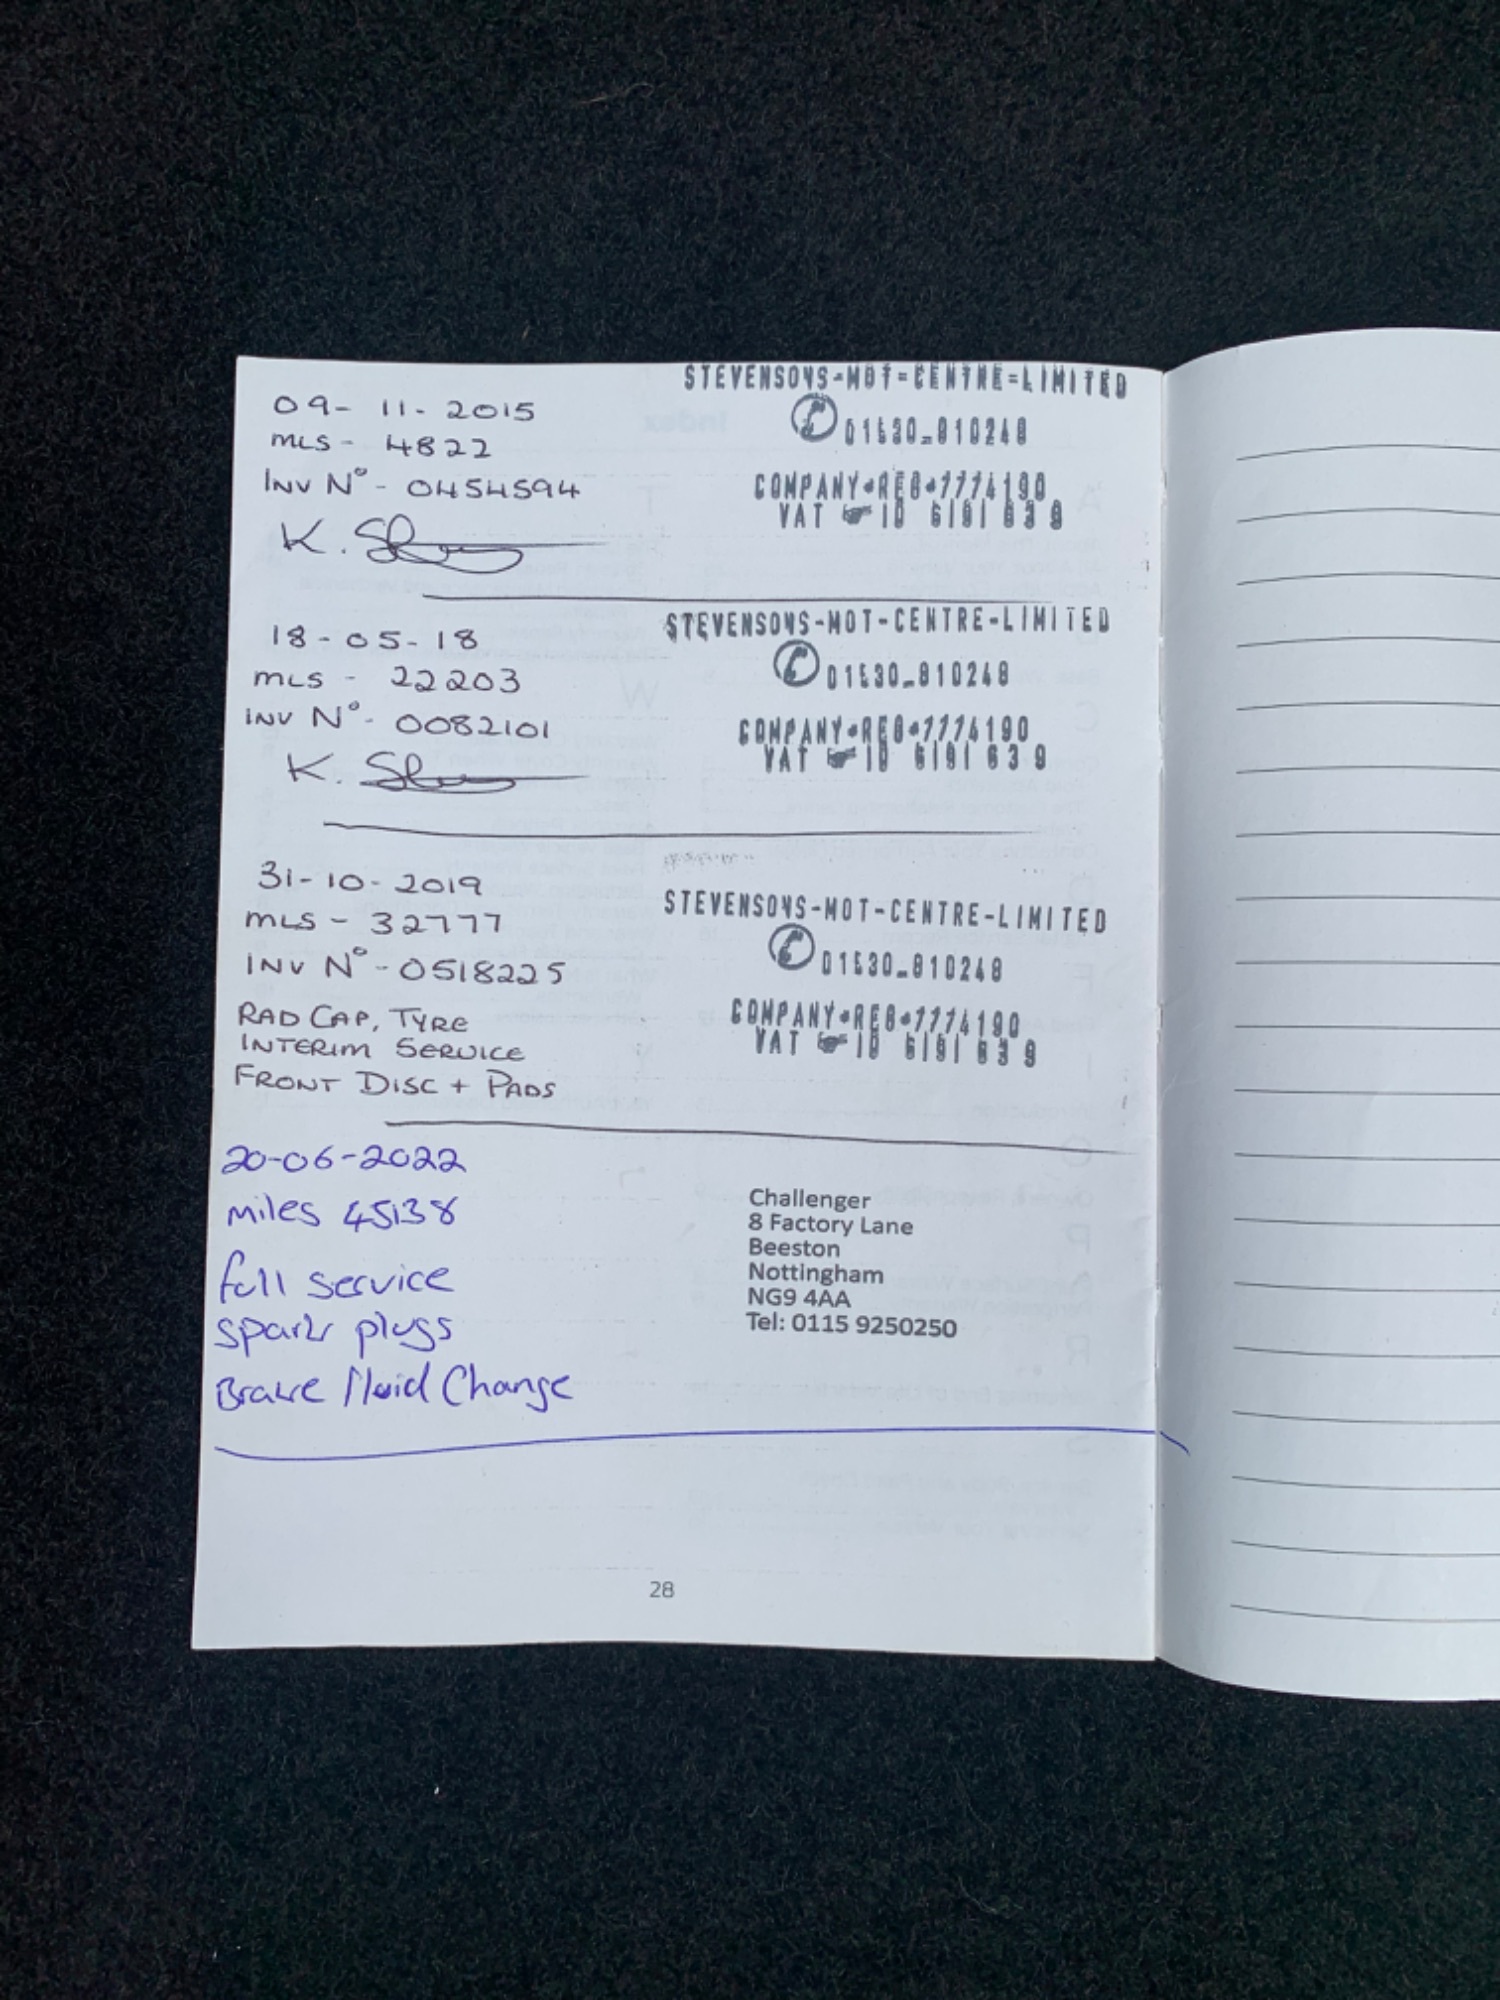 09-11-2015
MLS - 4822
INV Nº - 0454594
K.
STEVENSONS-MOT-CENTRE-LIMITED
01530-810248
COMPANY REG 7774190
VAT ID 6191 639
18-05-18
MLS - 22203
INV Nº - 0082101
K.
STEVENSONS-MOT-CENTRE-LIMITED
01530-810248
COMPANY REG 7774190
VAT ID 6191 639
31-10-2019
MLS - 32777
INV Nº - 0518225
RAD CAP, TYRE
INTERIM SERVICE
FRONT DISC + PADS
STEVENSONS-MOT-CENTRE-LIMITED
01530-810248
COMPANY REG 7774190
VAT ID 6191 639
20-06-2022
Miles 45138
full service
spark plugs
Brake fluid Change
Challenger
8 Factory Lane
Beeston
Nottingham
NG9 4AA
Tel: 0115 9250250
28